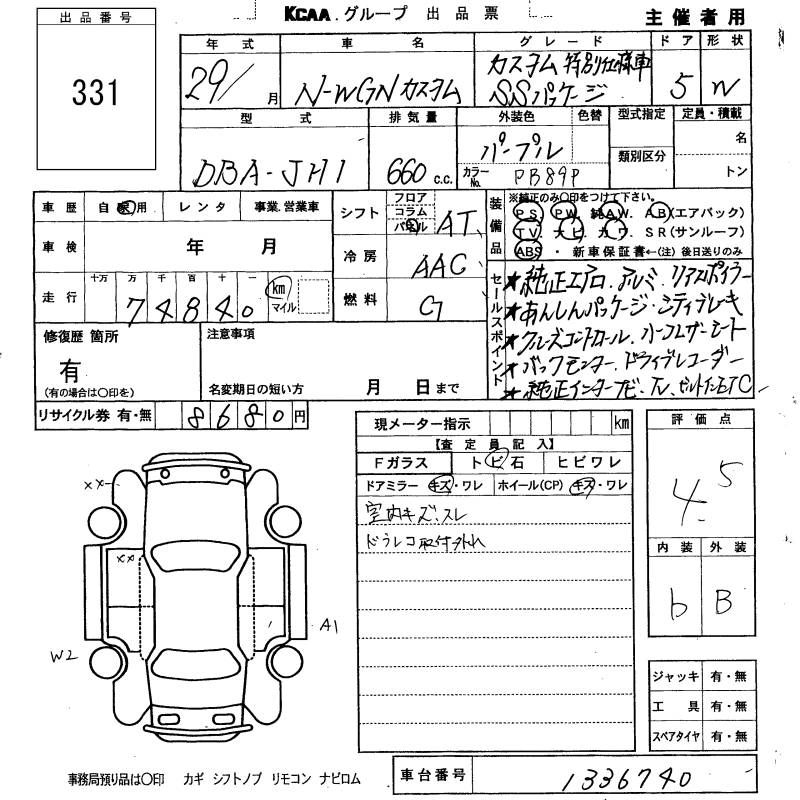 出品番号
331
KCAA グループ 出品票
主催者用
年式 車名 グレード ドア 形状
29/ 月 N-WGNカスタム カスタム 特別仕様車 SSパッケージ 5 W
型式 排気量 外装色 色替 型式指定 定員・積載
DBA-JH1 660 c.c. パープル 類別区分 名
カラーNo. PB89P トン
車歴 自家用 レンタ 事業.営業車
車検 年 月
走行 十万 万 千 百 十 一
74840 km マイル
シフト フロア コラム パネル AT
冷房 AAC
燃料 G
装備品 ※純正のみ○印をつけて下さい。
PS. PW. 純AW. AB(エアバック)
TV. ナビ. カワ. SR(サンルーフ)
ABS・新車保証書←(注)後日送りのみ
セールスポイント
★純正エアロ.アルミ.リアスポイラー
★あんしんパッケージ・シティブレーキ
★クルーズコントロール.ハーフレザーシート
★バックモニター.ドライブレコーダー
★純正インターナビ.TV.ビルトインETC
修復歴 箇所
有
(有の場合は○印を)
注意事項
名変期日の短い方 月 日まで
リサイクル券 有・無 8680円
現メーター指示 km
【査定員記入】
Fガラス トビ石 ヒビワレ
ドアミラー キズ・ワレ ホイール(CP) キズ・ワレ
室内キズ.スレ
ドラレコ取付外れ
評価点
4.5
内装 外装
b B
××
××
A1
W2
ジャッキ 有・無
工具 有・無
スペアタイヤ 有・無
事務局預り品は○印 カギ シフトノブ リモコン ナビロム
車台番号 1336740